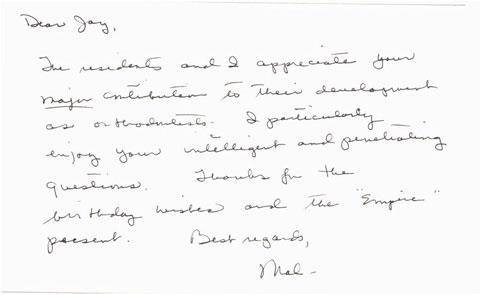 Dear Jay,
The residents and I appreciate your
major contribution to their development
as orthodontists. I particularly
enjoy your intelligent and penetrating
questions. Thanks for the
birthday wishes and the "Empire"
present. Best regards,
Mal-